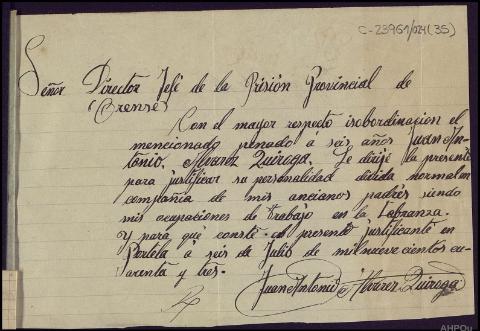 C-23961/024(35)
Señor Director Jefe de la Prisión Provincial de
(Orense)
Con el mayor respecto isobordinacion el
mencionado penado á seis años Juan An-
tonio, Alvarez Quiroga. Le dirijé la presente
para justificar su personalidad devida normal en
compañia de mis ancianos padres siendo
mis ocupaciones de trabajo en la Labranza.
Y para qué conste el presente justificante en
Portela á seis de Julio de mil nueve cientos cu-
arenta y tres.
Juan Antonio Alvarez Quiroga
AHPOu